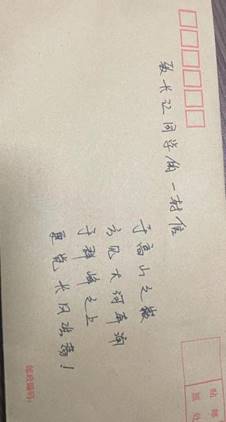 致长江同学的一封信
于高山之巅
方见大河奔涌
于群峰之上
更觉长风浩荡！
贴 邮
票 处
邮政编码：